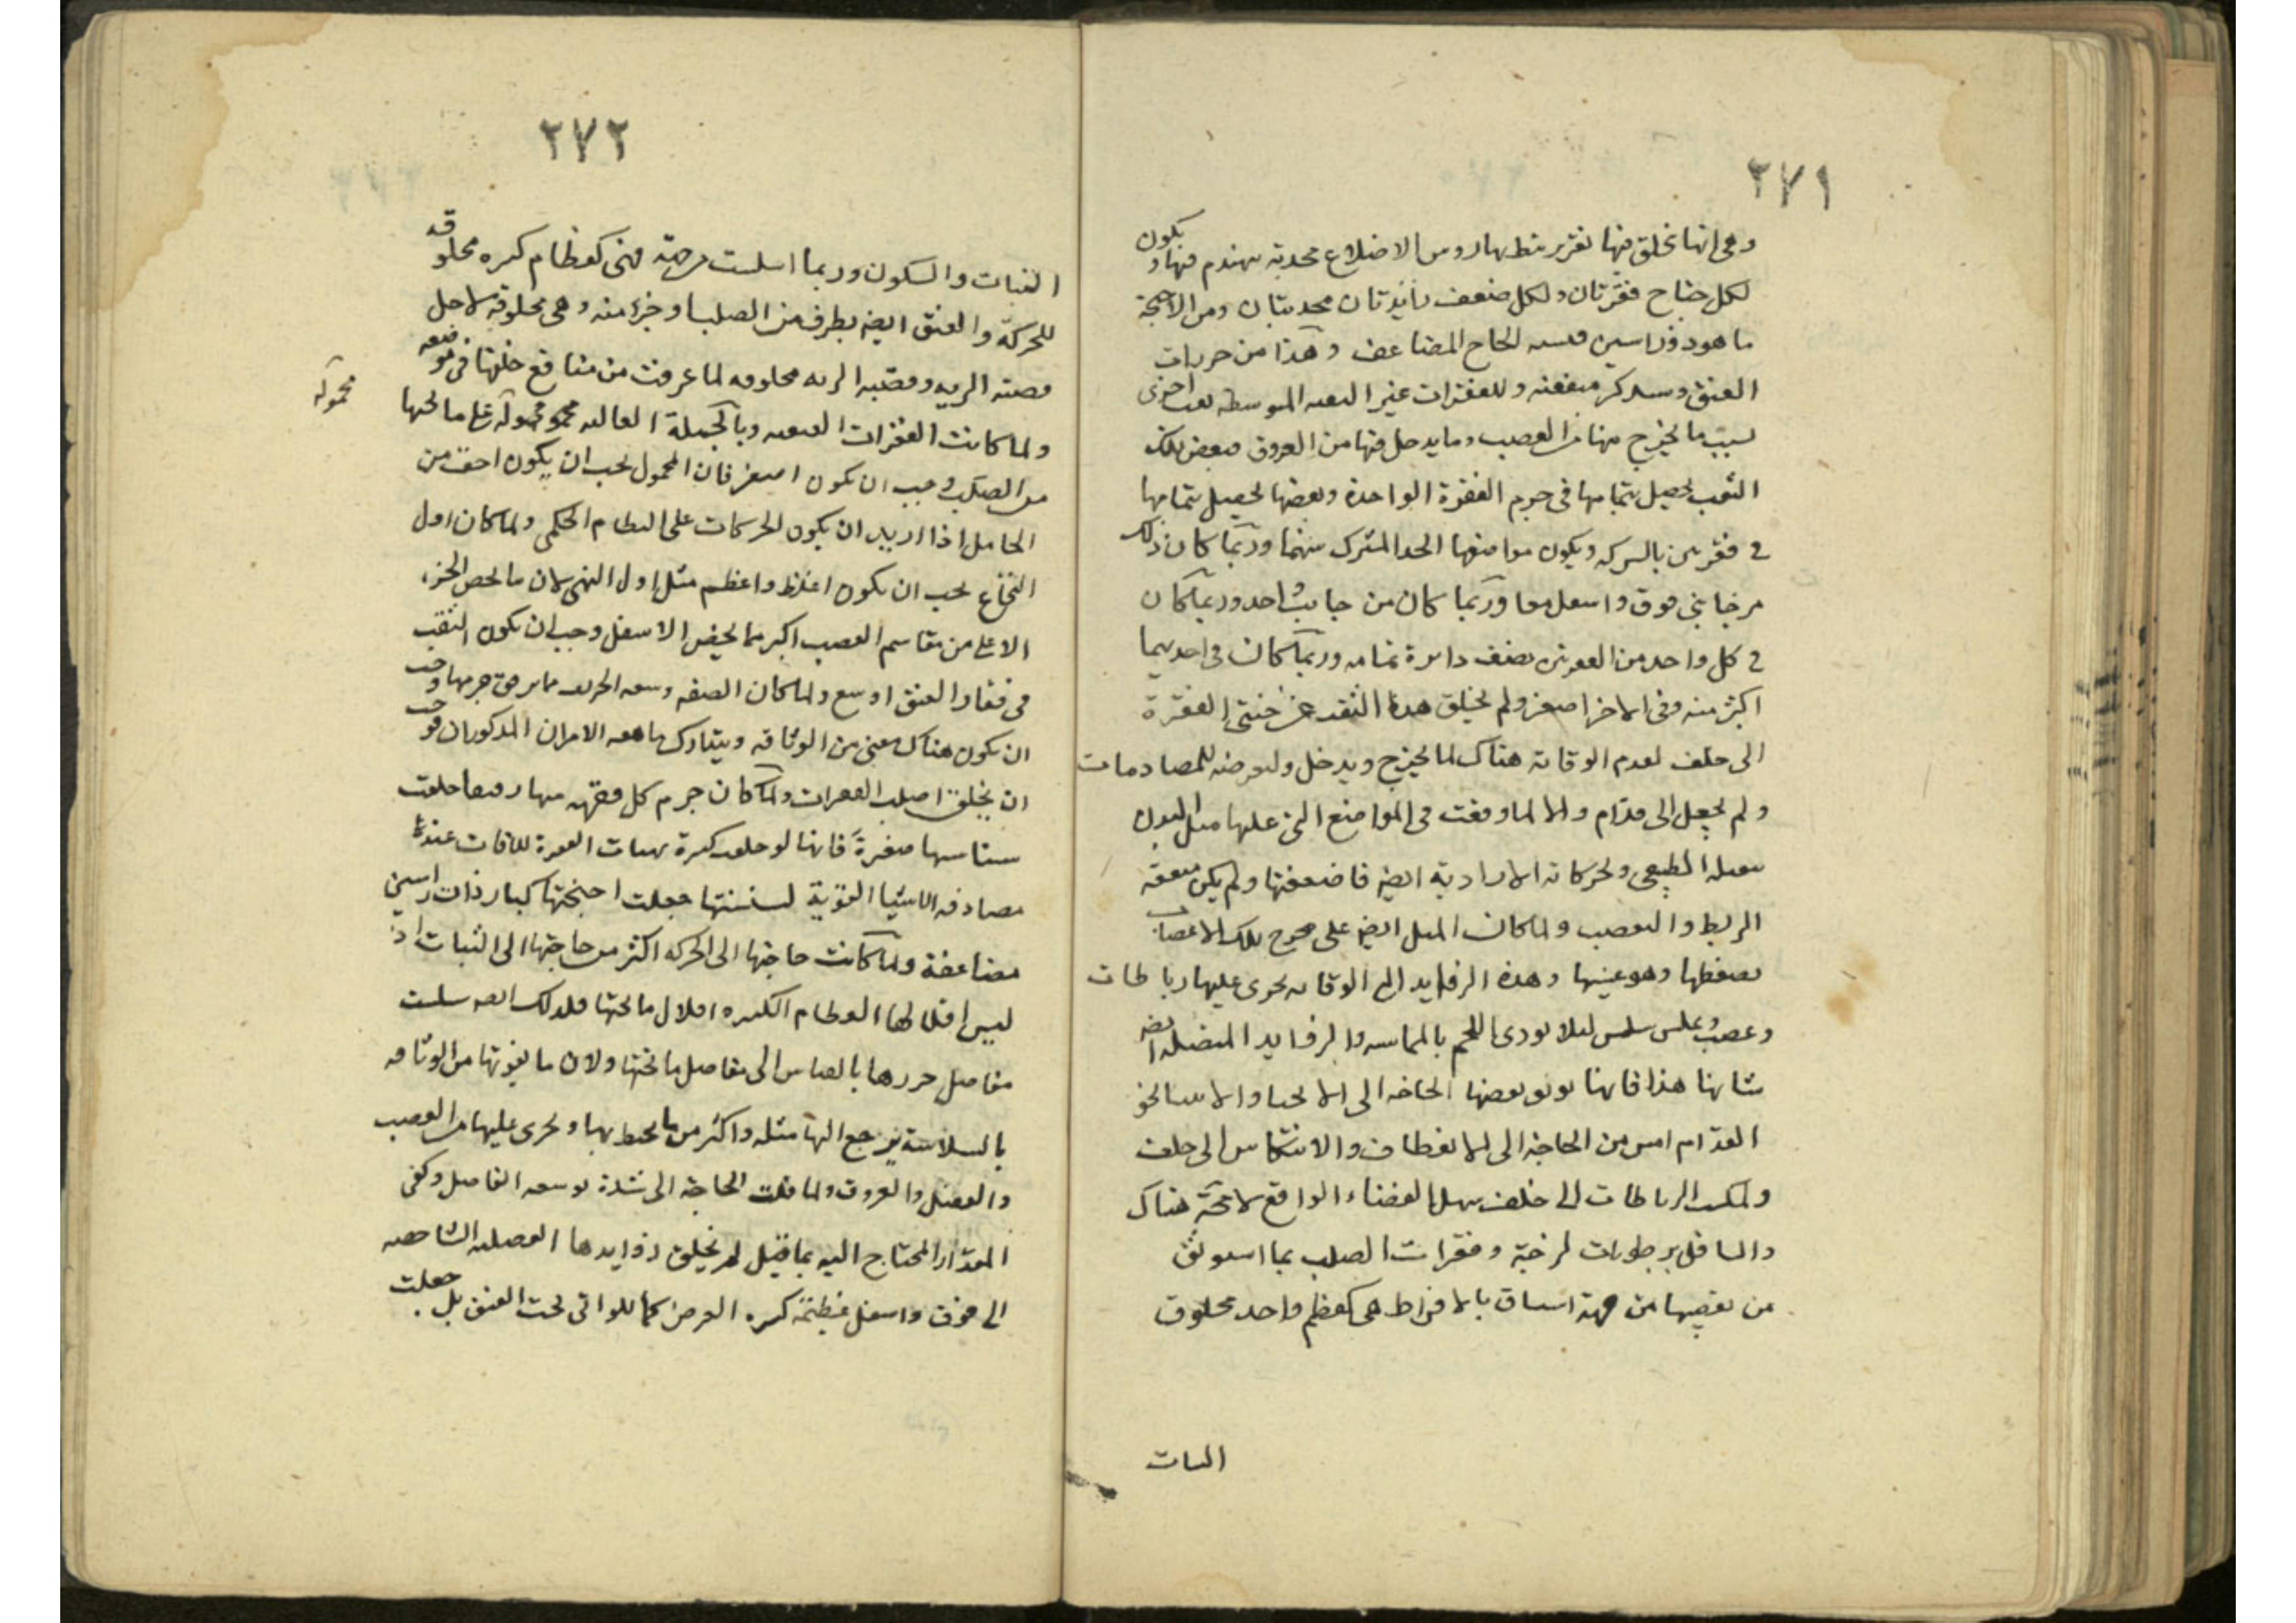 ٢٧١
وهى انها تخلق فيها نقر يرتبط بها روس الاضلاع محدبة تهندم فيها ويكون
لكل جناح نقرتان ولكل ضعف زايدتان محدبتان ومن الاجنحة
ما هو ذو راسين فيشبه الجناح المضاعف وهذا من خرزات
العنق وسنذكر منفعته وللفقرات غير الثقبه المتوسطه ثقب اخرى
لسبب ما يخرج منها من العصب وما يدخل فيها من العروق فبعض تلك
الثقب يحصل بتمامها فى جرم الفقرة الواحدة وبعضها يحصل بتمامها
فى فقرتين بالشركه ويكون موضعها الحد المشترك بينهما وربما كان ذلك
من جانبى فوق واسفل معا وربما كان من جانب واحد وربما كان
فى كل واحد من الفقرتين نصف دائرة تامه وربما كان فى احديهما
اكثر منه وفى الاخر اصغر ولم يخلق هذا الثقب عن جنبتى الفقرة
الى خلف لعدم الوقاية هناك لما يخرج ويدخل ولتعرضه للمصادمات
ولم يجعل الى قدام والا لما وقعت فى المواضع التى عليها ميل البدن
بثقله الطبيعى وبحركاته الارادية ايضه فاضعفتها ولم يكن متقنه
الربط والتعصب ولما كان الميل ايضه على مخرج تلك الاعصاب
يضغطها وهو عينها وهذه الزوايد التى للوقايه يجرى عليها رباطات
وعصب وعلس سلس لئلا يوذى اللحم بالمماسه والزوايد المفصليه ايضه
شانها هذا فانها يوثق بعضها الحاجه الى الانحنا والانثنا نحو
القدام امس من الحاجه الى الانعطاف والانتكاس الى خلف
ولما كانت الرباطات الى خلف شغل الفضاء الواقع لا محة هناك
والسافل برطوبات لزجة وفقرات الصلب بما استوثق
من تعقيبها من جهة استيثاقا بالافراط هى كعظم واحد مخلوق
الثبات
٢٧٢
الثبات والسكون وربما اسلست من جهة فهى كعظام كثيره مخلوقه
للحركة والعنق ايضه بطرف من الصلب او جزء منه وهى مخلوقه لاجل
قصبه الريه وقصبه الريه مخلوقه لما عرفت من منافع خلقها فى موضعه
ولما كانت الفقرات العنقيه وبالجملة العاليه محمو محمولة على ما تحتها
محمولة
من الصلب وجب ان يكون اصغر فان المحمول يجب ان يكون اخف من
الحامل اذا اريد ان يكون الحركات على النظام الحكمى ولما كان اول
النخاع يجب ان يكون اغلظ واعظم مثل اول النهر لان ما يخص الجزء
الاعلى من مقاسم العصب اكبر مما يخص الاسفل وجب ان يكون الثقب
فى فقار العنق اوسع ولما كان الصغر وسعه التجويف مما يرقق جرمها وجب
ان يكون هناك معنى من الوثاقه ويتدارك ما هعه الامران المذكوران فوجب
ان يخلق اصلب الفقرات ولما كان جرم كل فقرة منها رقيقا خلقت
سناسنها صغيرة فانها لو خلقت كبيرة تهيات الفقرة للافات عند
مصادفه الاشيا القوية لسنسنتها جعلت اجنحتها كبار ذات راسين
مضاعفة ولما كانت حاجتها الى الحركه اكثر من حاجتها الى الثبات اذ
ليس اقلالها العظام الكثيره اقلال ما تحتها فلذلك ايضه سلست
مفاصل خرزها بالقياس الى مفاصل ما تحتها ولان ما يفوتها من الوثاقه
بالسلاسة يرجع اليها مثله او اكثر من ما يحيط بها ويجرى عليها من العصب
والعضل والعروق ولما قلت الحاجة الى شدة توسعه المفاصل وكفى
المقدار المحتاج اليه بما قيل لم يخلق زوايدها المفصليه الشاخصه
الى فوق واسفل عظيمة كثيره العرض كما للواتى تحت العنق بل جعلت